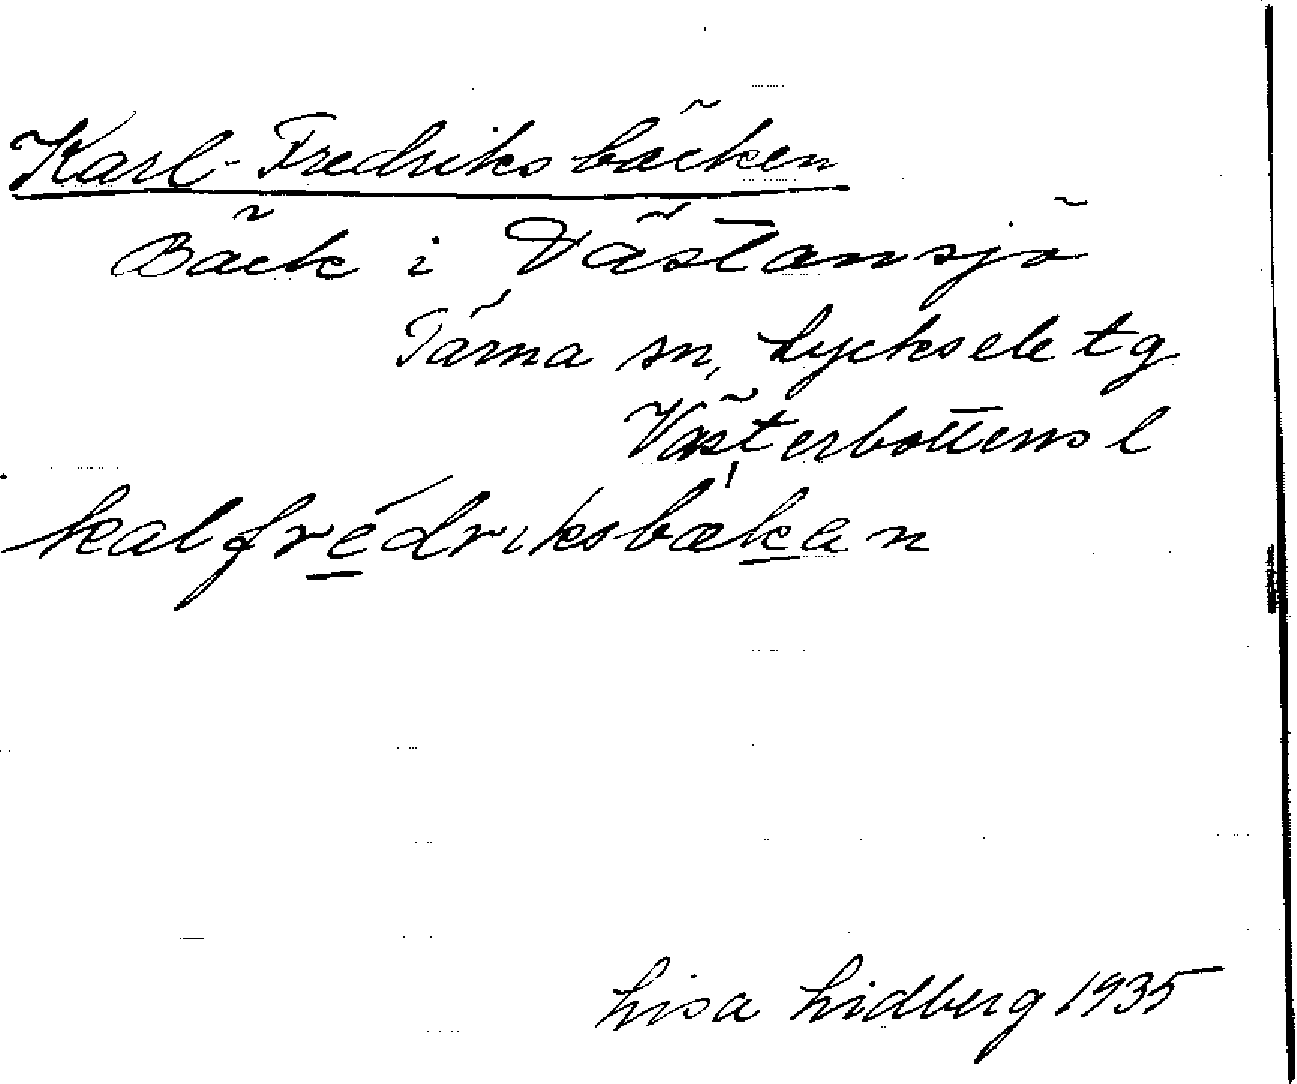 Karl-Fredriksbäcken
Bäck i Västansjö
Tärna sn, Lycksele tg
Västerbottens l
kalfrédriksbækan
Lisa Lidberg 1935